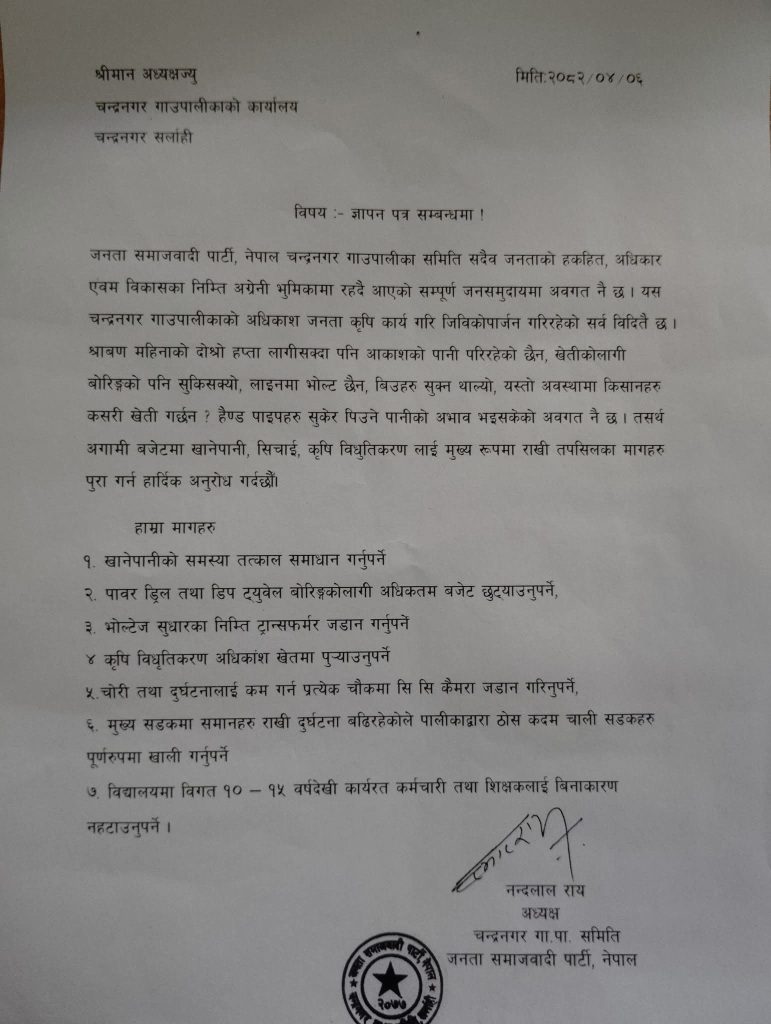 श्रीमान अध्यक्षज्यु
मिति:२०८२/०४/०६
चन्द्रनगर गाउपालीकाको कार्यालय
चन्द्रनगर सर्लाही
विषय :- ज्ञापन पत्र सम्बन्धमा !
जनता समाजवादी पार्टी, नेपाल चन्द्रनगर गाउपालीका समिति सदैव जनताको हकहित, अधिकार
एवम विकासका निम्ति अग्रेनी भुमिकामा रहदै आएको सम्पूर्ण जनसमुदायमा अवगत नै छ । यस
चन्द्रनगर गाउपालीकाको अधिकाश जनता कृषि कार्य गरि जिविकोपार्जन गरिरहेको सर्व विदितै छ ।
श्राबण महिनाको दोश्रो हप्ता लागीसक्दा पनि आकाशको पानी परिरहेको छैन, खेतीकोलागी
बोरिङ्गको पनि सुकिसक्यो, लाइनमा भोल्ट छैन, बिउहरु सुक्न थाल्यो, यस्तो अवस्थामा किसानहरु
कसरी खेती गर्छन ? हैण्ड पाइपहरु सुकेर पिउने पानीको अभाव भइसकेको अवगत नै छ । तसर्थ
अगामी बजेटमा खानेपानी, सिचाई, कृषि विधुतिकरण लाई मुख्य रूपमा राखी तपसिलका मागहरु
पुरा गर्न हार्दिक अनुरोध गर्दछौँ।
हाम्रा मागहरु
१. खानेपानीको समस्या तत्काल समाधान गर्नुपर्ने
२. पावर ड्रिल तथा डिप ट्युवेल बोरिङ्गकोलागी अधिकतम बजेट छुट्याउनुपर्ने,
३. भोल्टेज सुधारका निम्ति ट्रान्सफर्मर जडान गर्नुपर्ने
४ कृषि विधृतिकरण अधिकांश खेतमा पुऱ्याउनुपर्ने
५.चोरी तथा दुर्घटनालाई कम गर्न प्रत्येक चौकमा सि सि कैमरा जडान गरिनुपर्ने,
६. मुख्य सडकमा समानहरु राखी दुर्घटना बढिरहेकोले पालीकाद्वारा ठोस कदम चाली सडकहरु
पूर्णरुपमा खाली गर्नुपर्ने
७. विद्यालयमा विगत १० – १५ वर्षदेखी कार्यरत कर्मचारी तथा शिक्षकलाई बिनाकारण
नहटाउनुपर्ने ।
नन्दलाल राय
अध्यक्ष
चन्द्रनगर गा.पा. समिति
जनता समाजवादी पार्टी, नेपाल
जनता समाजवादी पार्टी, नेपाल
२०७७